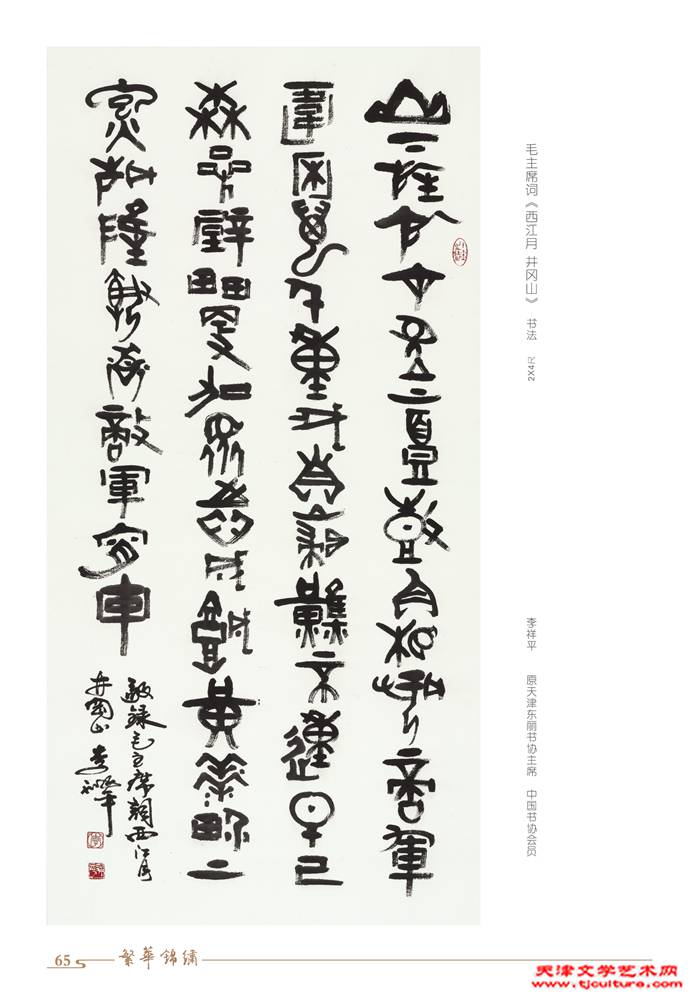 毛主席词《西江月 井冈山》 书法 2X4尺
李祥平 原天津东丽书协主席 中国书协会员
山下旌旂在望山頭鼓角相聞敵軍
圍困萬千重我自巋然不動早已
森嚴壁壘更加眾志成城黃洋界上
炮聲隆報道敵軍宵遁
敬録毛主席詞西江月
井岡山 李祥平
65 繁華錦繡
天津文学艺术网
www.tjculture.com